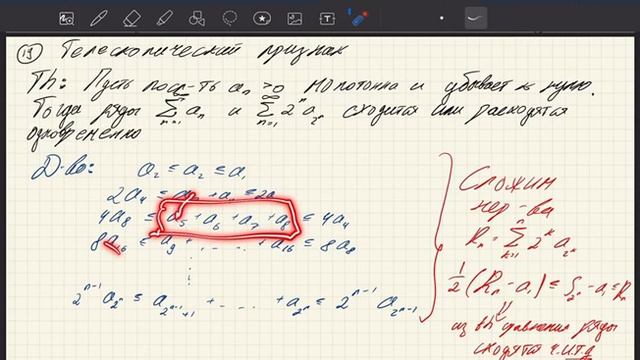 19 Телескопический признак
Th: Пусть посл-ть aₙ ≥ 0 монотонна и убывает к нулю.
Тогда ряды ∑ₙ₌₁^∞ aₙ и ∑ₙ₌₁^∞ 2ⁿ a_{2ⁿ} сходятся или расходятся
одновременно
Д-во: a₂ ≤ a₂ ≤ a₁
2a₄ ≤ a₃ + a₄ ≤ 2a₂
4a₈ ≤ a₅ + a₆ + a₇ + a₈ ≤ 4a₄
8a₁₆ ≤ a₉ + ... + a₁₆ ≤ 8a₈
⋮
2ⁿ⁻¹ a_{2ⁿ} ≤ a_{2ⁿ⁻¹+1} + ... + a_{2ⁿ} ≤ 2ⁿ⁻¹ a_{2ⁿ⁻¹}
Сложим
нер-ва
Rₙ = ∑ₖ₌₁ⁿ 2ᵏ a_{2ᵏ}
½(Rₙ - a₁) ≤ S_{2ⁿ} - a₁ ≤ Rₙ
из сравнения ряды
сходятся ч.и.т.д